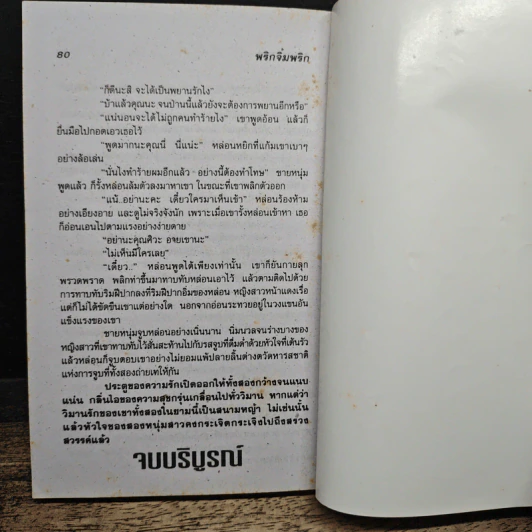 80 พริกจิ้มพริก
“ก็ดีนะสิ จะได้เป็นพยานรักไง”
“บ้าแล้วคุณนะ จนป่านนี้แล้วยังจะต้องการพยานอีกหรือ”
“แน่นอนจะได้ไม่ถูกคนทำร้ายไง” เขาพูดอ้อน แล้วก็
ยื่นมือไปกอดเอวเธอไว้
“พูดมากนะคุณนี่ นี่แน่ะ” หล่อนหยิกที่แก้มเขาเบาๆ
อย่างล้อเล่น
“นั่นไงทำร้ายผมอีกแล้ว อย่างนี้ต้องทำโทษ” ชายหนุ่ม
พูดแล้ว ก็รั้งหล่อนล้มตัวลงมาหาเขา ในขณะที่เขาพลิกตัวออก
“แน้..อย่านะคะ เดี๋ยวใครมาเห็นเข้า” หล่อนร้องห้าม
อย่างเอียงอาย และดูไม่จริงจังนัก เพราะเมื่อเขารั้งหล่อนเข้าหา เธอ
ก็อ่อนเอนไปตามแรงอย่างง่ายดาย
“อย่านะคุณศิวะ อจยเขานะ”
“ไม่เห็นมีใครเลย”
“เดี๋ยว..” หล่อนพูดได้เพียงเท่านั้น เขาก็ยันกายลุก
พรวดพราด พลิกท่าขึ้นมาทาบทับหล่อนเอาไว้ แล้วตามติดไปด้วย
การทาบทับริมฝีปากลงที่ริมฝีปากอิ่มของหล่อน หญิงสาวหน้าแดงเรื่อ
แต่ก็ไม่ได้ขัดขืนเขาแต่อย่างใด นอกจากอ่อนระทวยอยู่ในวงแขนอัน
แข็งแรงของเขา
ชายหนุ่มจูบหล่อนอย่างเนิ่นนาน นิ่มนวลจนร่างบางของ
หญิงสาวที่เขาทาบทับไว้สั่นสะท้านไปกับรสจูบที่ดื่มด่ำด้วยหัวใจที่เต้นรัว
แล้วหล่อนก็จูบตอบเขาอย่างไม่ยอมแพ้ปลายลิ้นต่างตวัดหารสชาติ
แห่งการจูบที่ทั้งสองถ่ายเทให้กัน
ประตูของความรักเปิดออกให้ทั้งสองกว้างจนแนบ
แน่น กลิ่นไอของความสุขกรุ่นเกลื่อนไปทั่ววิมาน หากแต่ว่า
วิมานรักของเขาทั้งสองในยามนี้เป็นสนามหญ้า ไม่เช่นนั้น
แล้วหัวใจของสองหนุ่มสาวคงกระเจิดกระเจิงไปถึงสรวง
สวรรค์แล้ว
จบบริบูรณ์